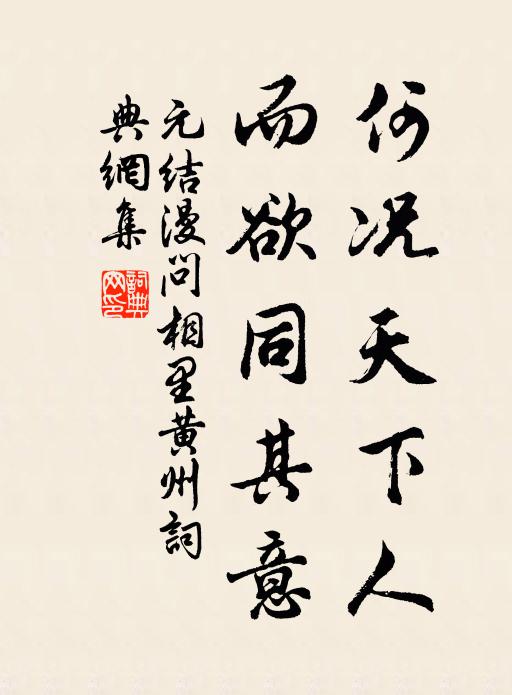 何况天下人
而欲同其意
元结漫问相里黄州词
典網集
詞典網印